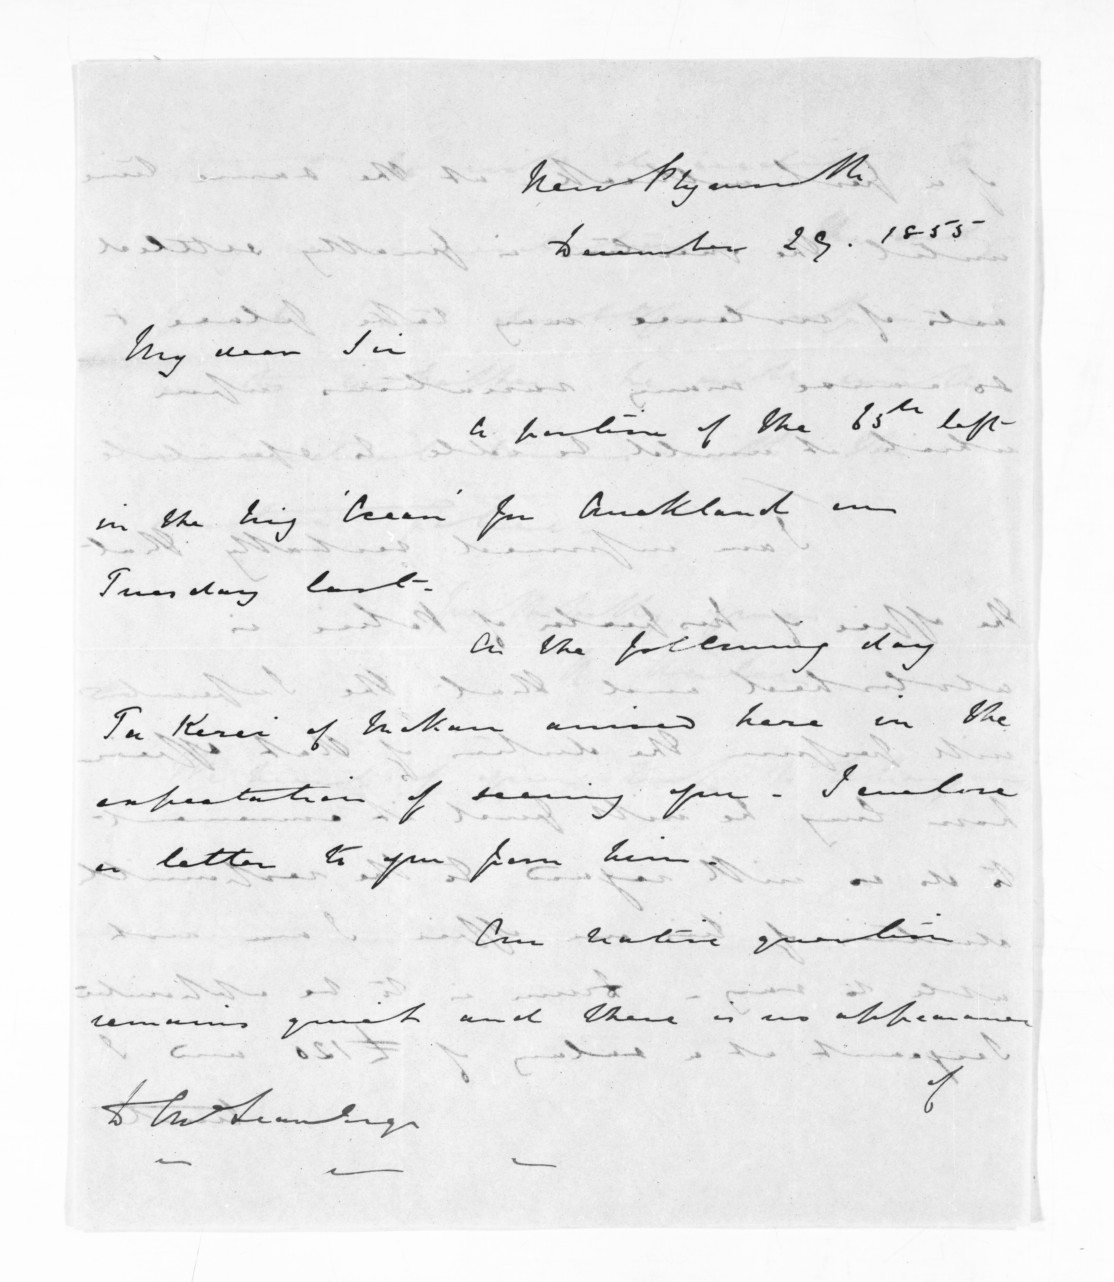 New Plymouth
December 29. 1855
My dear Sir
A portion of the 65th left
in the brig 'Ocean' for Auckland on
Tuesday last.
On the following day
Ta Kerei of Mokau arrived here in the
expectation of seeing you - I enclose
a letter to you from him.
Our native question
remains quiet and there is no appearance
of
D McLean Esqr